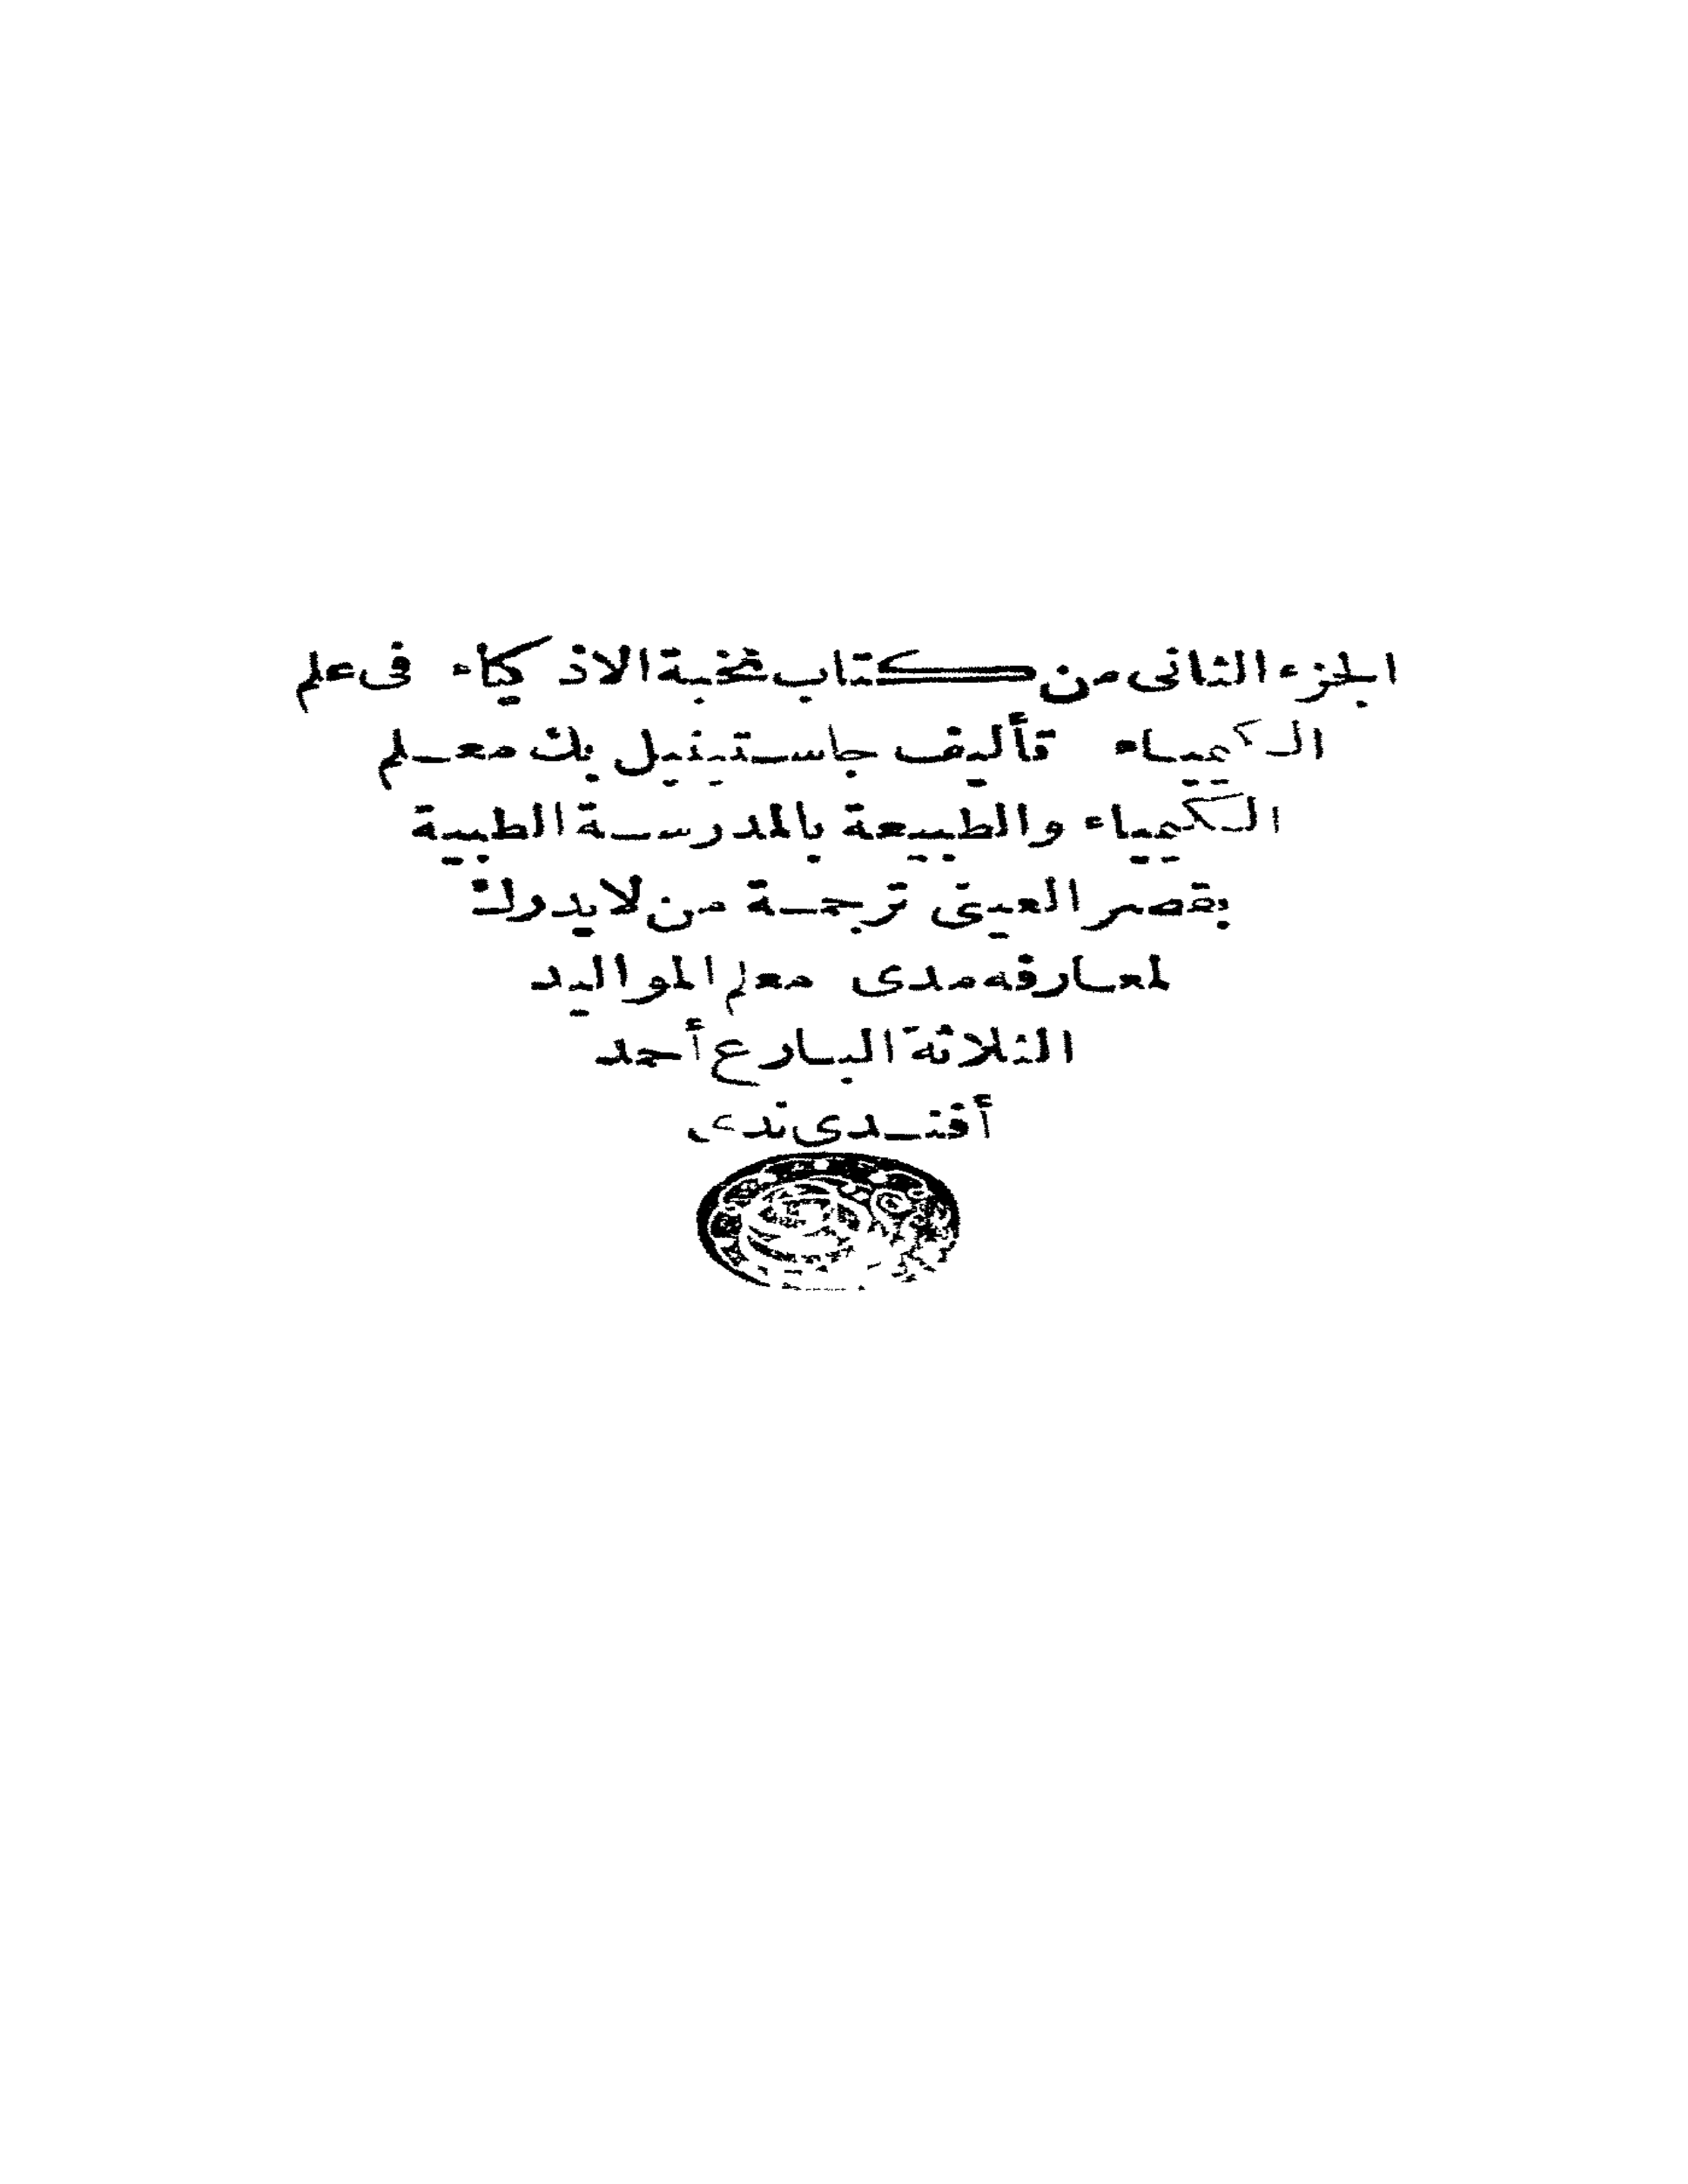 الجزء الثانى من كتاب نخبة الاذكياء فى علم
الكيمياء تأليف جاستينيل بك معلم
الكيمياء والطبيعة بالمدرسة الطبية
بقصر العينى ترجمة من لا يدرك
لمعارفه مدى معلم المواليد
الثلاثة البارع أحمد
أفندى ندى